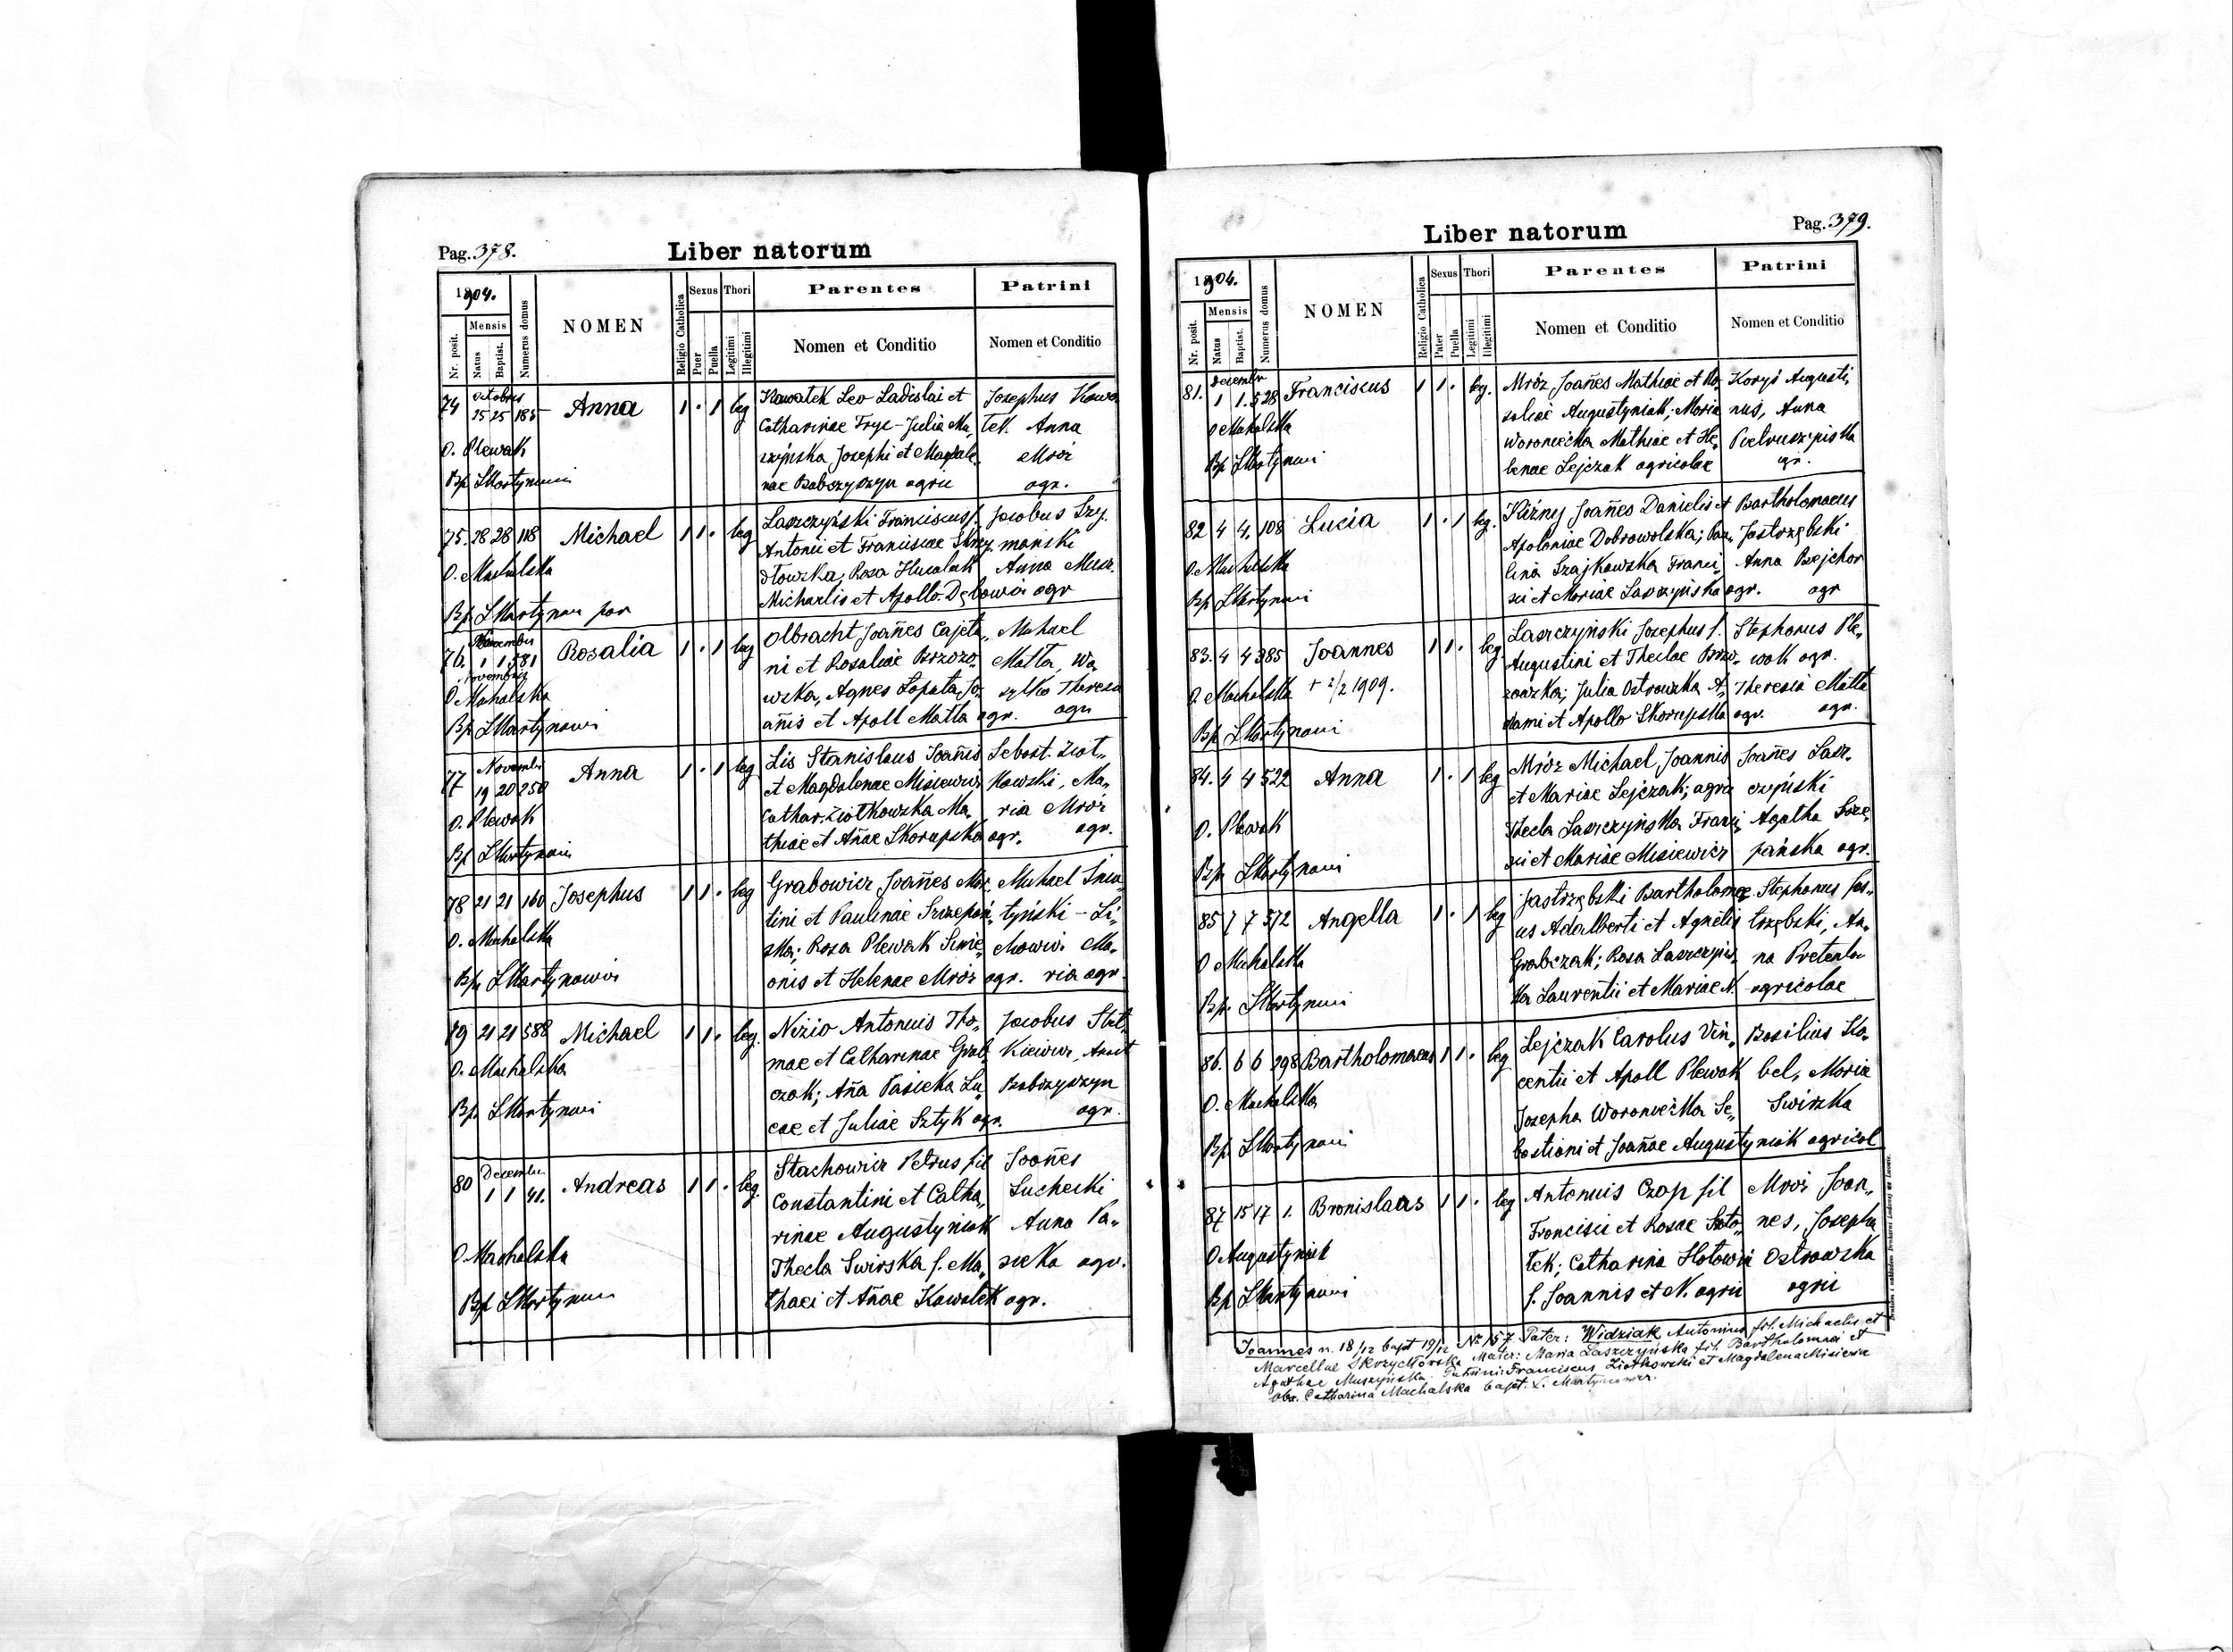 Pag. 378.
Liber natorum
1904.
Nr. posit.
Mensis
Natus
Baptist.
Numerus domus
NOMEN
Religio Catholica
Sexus
Puer
Puella
Thori
Legitimi
Illegitimi
Parentes
Nomen et Conditio
Patrini
Nomen et Conditio
74 Octobris 25 25 185 Anna 1 · 1 leg
Kowatek Leo Ladislai et
Catharinae Fryc - Julia Mu„
szyńska Josephi et Magdale„
nae Babszyszyn agric
Josephus Kowa
tek Anna
Mróz
agr.
O. Plewak
Bp. L Martynowi
75. 28 28 118 Michael 1 1 · leg
Laszczyński Franciscus f.
Antonii et Franciscae Skrzy„
dłowska; Rosa Husalak
Michaelis et Apollo. Dębowi agr
Jacobus Szy„
mański
Anna Musz.
O. Machalska
Bp. L Martynowi par
76. Novembris 1 1 581 Rosalia 1 · 1 leg
Novembris
Olbracht Joañes Cajeta„
ni et Rosaliae Brzozo„
wska, Agnes Łopata Jo„
añis et Apoll Matla agr.
Michael
Matla, Wa
sylko Theresa
agr
O Machalska
Bp L Martynowi
77 Novembr 19 20 250 Anna 1 · 1 leg
Lis Stanislaus Joañis
et Magdalenae Misiewicz
Cathar. Ziotkowska Ma„
thiae et Añae Skorupska agr.
Sebast. Ziot„
kowski, Ma„
ria Mróz
agr.
O. Plewak
Bp L Martynowi
78 21 21 160 Josephus 1 1 · leg
Grabowicz Joañes Mar„
tini et Paulinae Szczepań„
ska; Rosa Plewak Sime„
onis et Helenae Mróz agr.
Michael Śnia„
tyński - Li„
chowic Ma„
ria agr.
O. Machalska
Bp. L Martynowicz
79 21 21 588 Michael 1 1 · leg.
Niżio Antonius Tho„
mae et Catharinae Grab„
czak; Aña Pasieka Lu„
cae et Juliae Sztyk agr.
Jacobus
Babszyszyn
agr.
O. Machalska
Bp. L Martynowi
80 Decembr 1 1 41. Andreas 1 1 · leg.
Stachowicz Petrus fil
Constantini et Catha„
rinae Augustyniak
Thecla Swirska f. Ma„
thaei et Añae Kowaltek agr.
Joañes
Sucheski
Anna Pa„
sieka agr.
O Machalska
Bp L Martynowi
Pag. 379.
Liber natorum
1904.
Nr. posit.
Mensis
Natus
Baptist.
Numerus domus
NOMEN
Religio Catholica
Sexus
Pater
Puella
Thori
Legitimi
Illegitimi
Parentes
Nomen et Conditio
Patrini
Nomen et Conditio
81. Decembr 1 1. 528 Franciscus 1 1 · leg.
Mróz Joañes Mathiae et Ro„
saliae Augustyniak; Maria
Woroniecka Mathiae et He„
lenae Lejczak agricolae
Koryś Augusti„
nus, Anna
Pietruszyńska
agr.
O Machalska
Bp L Martynowi
82 4 4. 108 Lucia 1 · 1 leg.
Kiżny Joañes Danielis et
Apoloniae Dobrowolska; Pau„
lina Szajkowska Franci„
sci et Mariae Laszczyńska agr.
Bartholomaeus
Jastrzębski
Anna Bejchor
agr
O. Machalska
Bp L Martynowi
83. 4 4 385 Joannes 1 1 · leg
+ 2/2 1909.
Laszczyński Josephus f.
Augustini et Theclae Brzo„
zowska; Julia Ostrowska A„
dami et Apollo Skorupska agr.
Stephanus Ple„
wak agr.
Theresia Matla
agr.
O. Machalska
Bp L Martynowi
84. 4 4 522 Anna 1 · 1 leg
Mróz Michael Joannis
et Mariae Lejczak; agric
Thecla Laszczyńska Franci„
sci et Mariae Misiewicz
Joañes Lasz„
czyński
Agatha Szcze„
pańska agr.
O. Plewak
Bp. L Martynowi
85 7 7 572 Angella 1 · 1 leg
Jastrzębski Bartholomae„
us Adalberti et Agnetis
Grabczak; Rosa Laszczyńs„
ka Laurentii et Mariae N.
Stephanus Jas„
trzębski, An„
na
agricolae
O Machalska
Bp. L Martynowi
86. 6 6 298 Bartholomaeus 1 1 · leg
Lejczak Carolus Vin„
centii et Apoll Plewak
Josepha Woroniecka Se„
bastiani et Joañae Augustyniak agricol
Basilius Ko„
bel, Maria
Swirska
O. Machalska
Bp. L Martynowi
87 15 17 1. Bronislaus 1 1 · leg
Antonius Czop fil
Francisci et Rosae
tek; Catharina Hotowi
f. Joannis et N. agric
Mróz Joan„
nes, Josepha
Ostrowska
agric
O Augustyniak
Bp L Martynowi
Joannes n. 18/12 bapt 19/12 No 157 Pater: Widziak Antonius fil. Michaelis et
Marcellae Skrzydłowska Mater: Maria Laszczyńska fil. Bartholomaei et
Agathae Muszyńska. Patrini: Franciscus Ziotkowski et Magdalena Misiewicz
obs. Catharina Machalska bapt. L. Martynowicz.